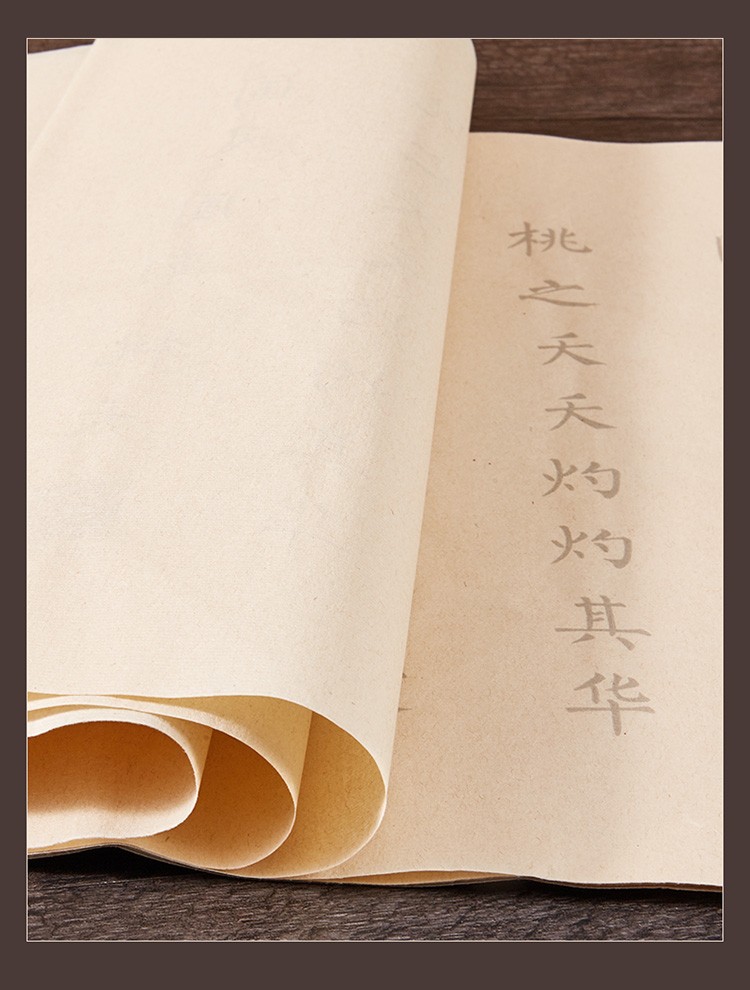 桃之夭夭灼灼其华